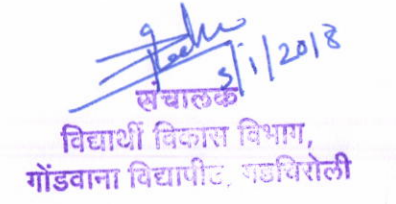 5/1/2018
संचालक
विद्यार्थी विकास विभाग,
गोंडवाना विद्यापीठ, गडचिरोली